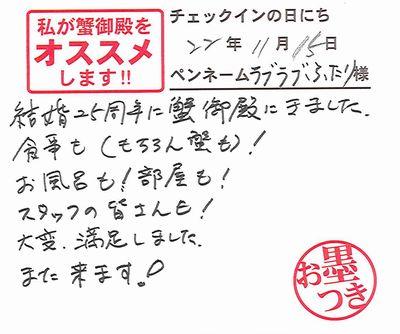 私が蟹御殿を
オススメ
します!!
チェックインの日にち
22年 11月 15日
ペンネームラブラブふたり様
結婚25周年に蟹御殿にきました.
食事も(もちろん蟹も)!
お風呂も!部屋も!
スタッフの皆さんも!
大変.満足しました.
また来ます!
お墨つき